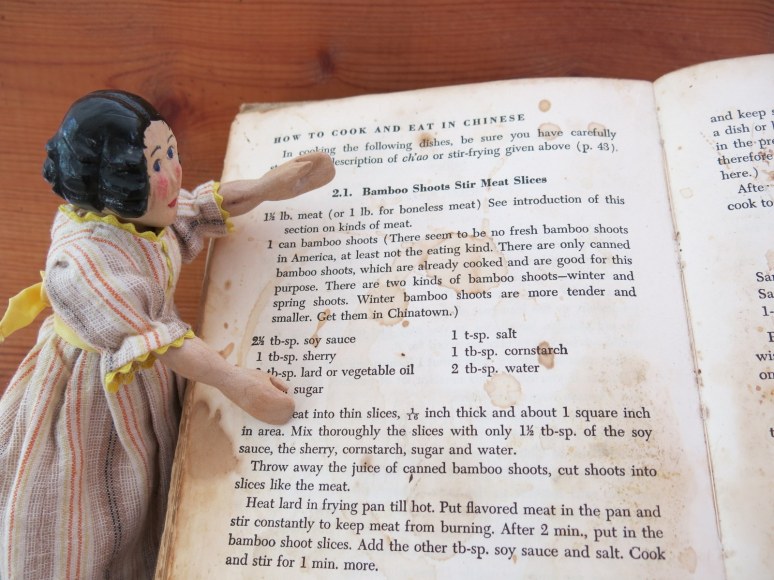 HOW TO COOK AND EAT IN CHINESE
In cooking the following dishes, be sure you have carefully
description of ch'ao or stir-frying given above (p. 43).
2.1. Bamboo Shoots Stir Meat Slices
1½ lb. meat (or 1 lb. for boneless meat) See introduction of this
section on kinds of meat.
1 can bamboo shoots (There seem to be no fresh bamboo shoots
in America, at least not the eating kind. There are only canned
bamboo shoots, which are already cooked and are good for this
purpose. There are two kinds of bamboo shoots—winter and
spring shoots. Winter bamboo shoots are more tender and
smaller. Get them in Chinatown.)
2½ tb-sp. soy sauce
1 tb-sp. sherry
tb-sp. lard or vegetable oil
sugar
1 t-sp. salt
1 tb-sp. cornstarch
2 tb-sp. water
eat into thin slices, 1/16 inch thick and about 1 square inch
in area. Mix thoroughly the slices with only 1½ tb-sp. of the soy
sauce, the sherry, cornstarch, sugar and water.
Throw away the juice of canned bamboo shoots, cut shoots into
slices like the meat.
Heat lard in frying pan till hot. Put flavored meat in the pan and
stir constantly to keep meat from burning. After 2 min., put in the
bamboo shoot slices. Add the other tb-sp. soy sauce and salt. Cook
and stir for 1 min. more.
and keep
a dish or
in the pre
therefore
here.)
After
cook to
Sa
Sa
1-
wi
on